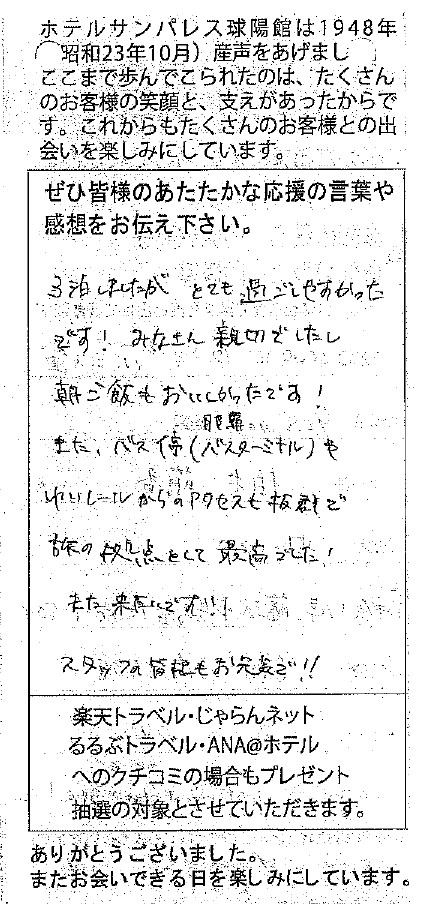 ホテルサンパレス球陽館は1948年
(昭和23年10月)産声をあげまし
ここまで歩んでこられたのは、たくさん
のお客様の笑顔と、支えがあったからで
す。これからもたくさんのお客様との出
会いを楽しみにしています。
ぜひ皆様のあたたかな応援の言葉や
感想をお伝え下さい。
3泊しましたが とても過ごしやすかった
です! みなさん親切でしたし
朝ご飯もおいしかったです!
那覇
また、バス停(バスターミナル)や
ゆいレールからのアクセスも抜群で
旅の拠点として最高でした!
また来たいです!!
スタッフの皆様もお元気で!!
楽天トラベル・じゃらんネット
るるぶトラベル・ANA@ホテル
へのクチコミの場合もプレゼント
抽選の対象とさせていただきます。
ありがとうございました。
またお会いできる日を楽しみにしています。